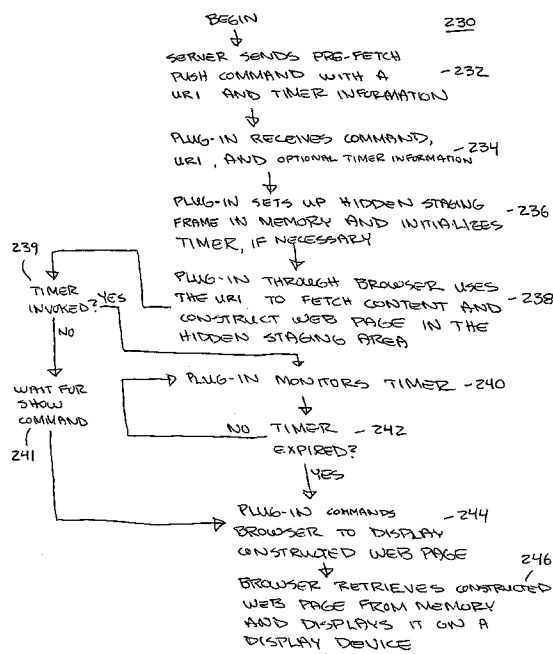 BEGIN
230
SERVER SENDS PRE-FETCH
PUSH COMMAND WITH A
URI AND TIMER INFORMATION
232
PLUG-IN RECEIVES COMMAND,
URI, AND OPTIONAL TIMER INFORMATION
234
PLUG-IN SETS UP HIDDEN STAGING
FRAME IN MEMORY AND INITIALIZES
TIMER, IF NECESSARY
236
PLUG-IN THROUGH BROWSER USES
THE URI TO FETCH CONTENT AND
CONSTRUCT WEB PAGE IN THE
HIDDEN STAGING AREA
238
239
TIMER
INVOKED?
YES
NO
WAIT FOR
SHOW
COMMAND
241
PLUG-IN MONITORS TIMER
240
TIMER
EXPIRED?
242
NO
YES
PLUG-IN COMMANDS
BROWSER TO DISPLAY
CONSTRUCTED WEB PAGE
244
246
BROWSER RETRIEVES CONSTRUCTED
WEB PAGE FROM MEMORY
AND DISPLAYS IT ON A
DISPLAY DEVICE